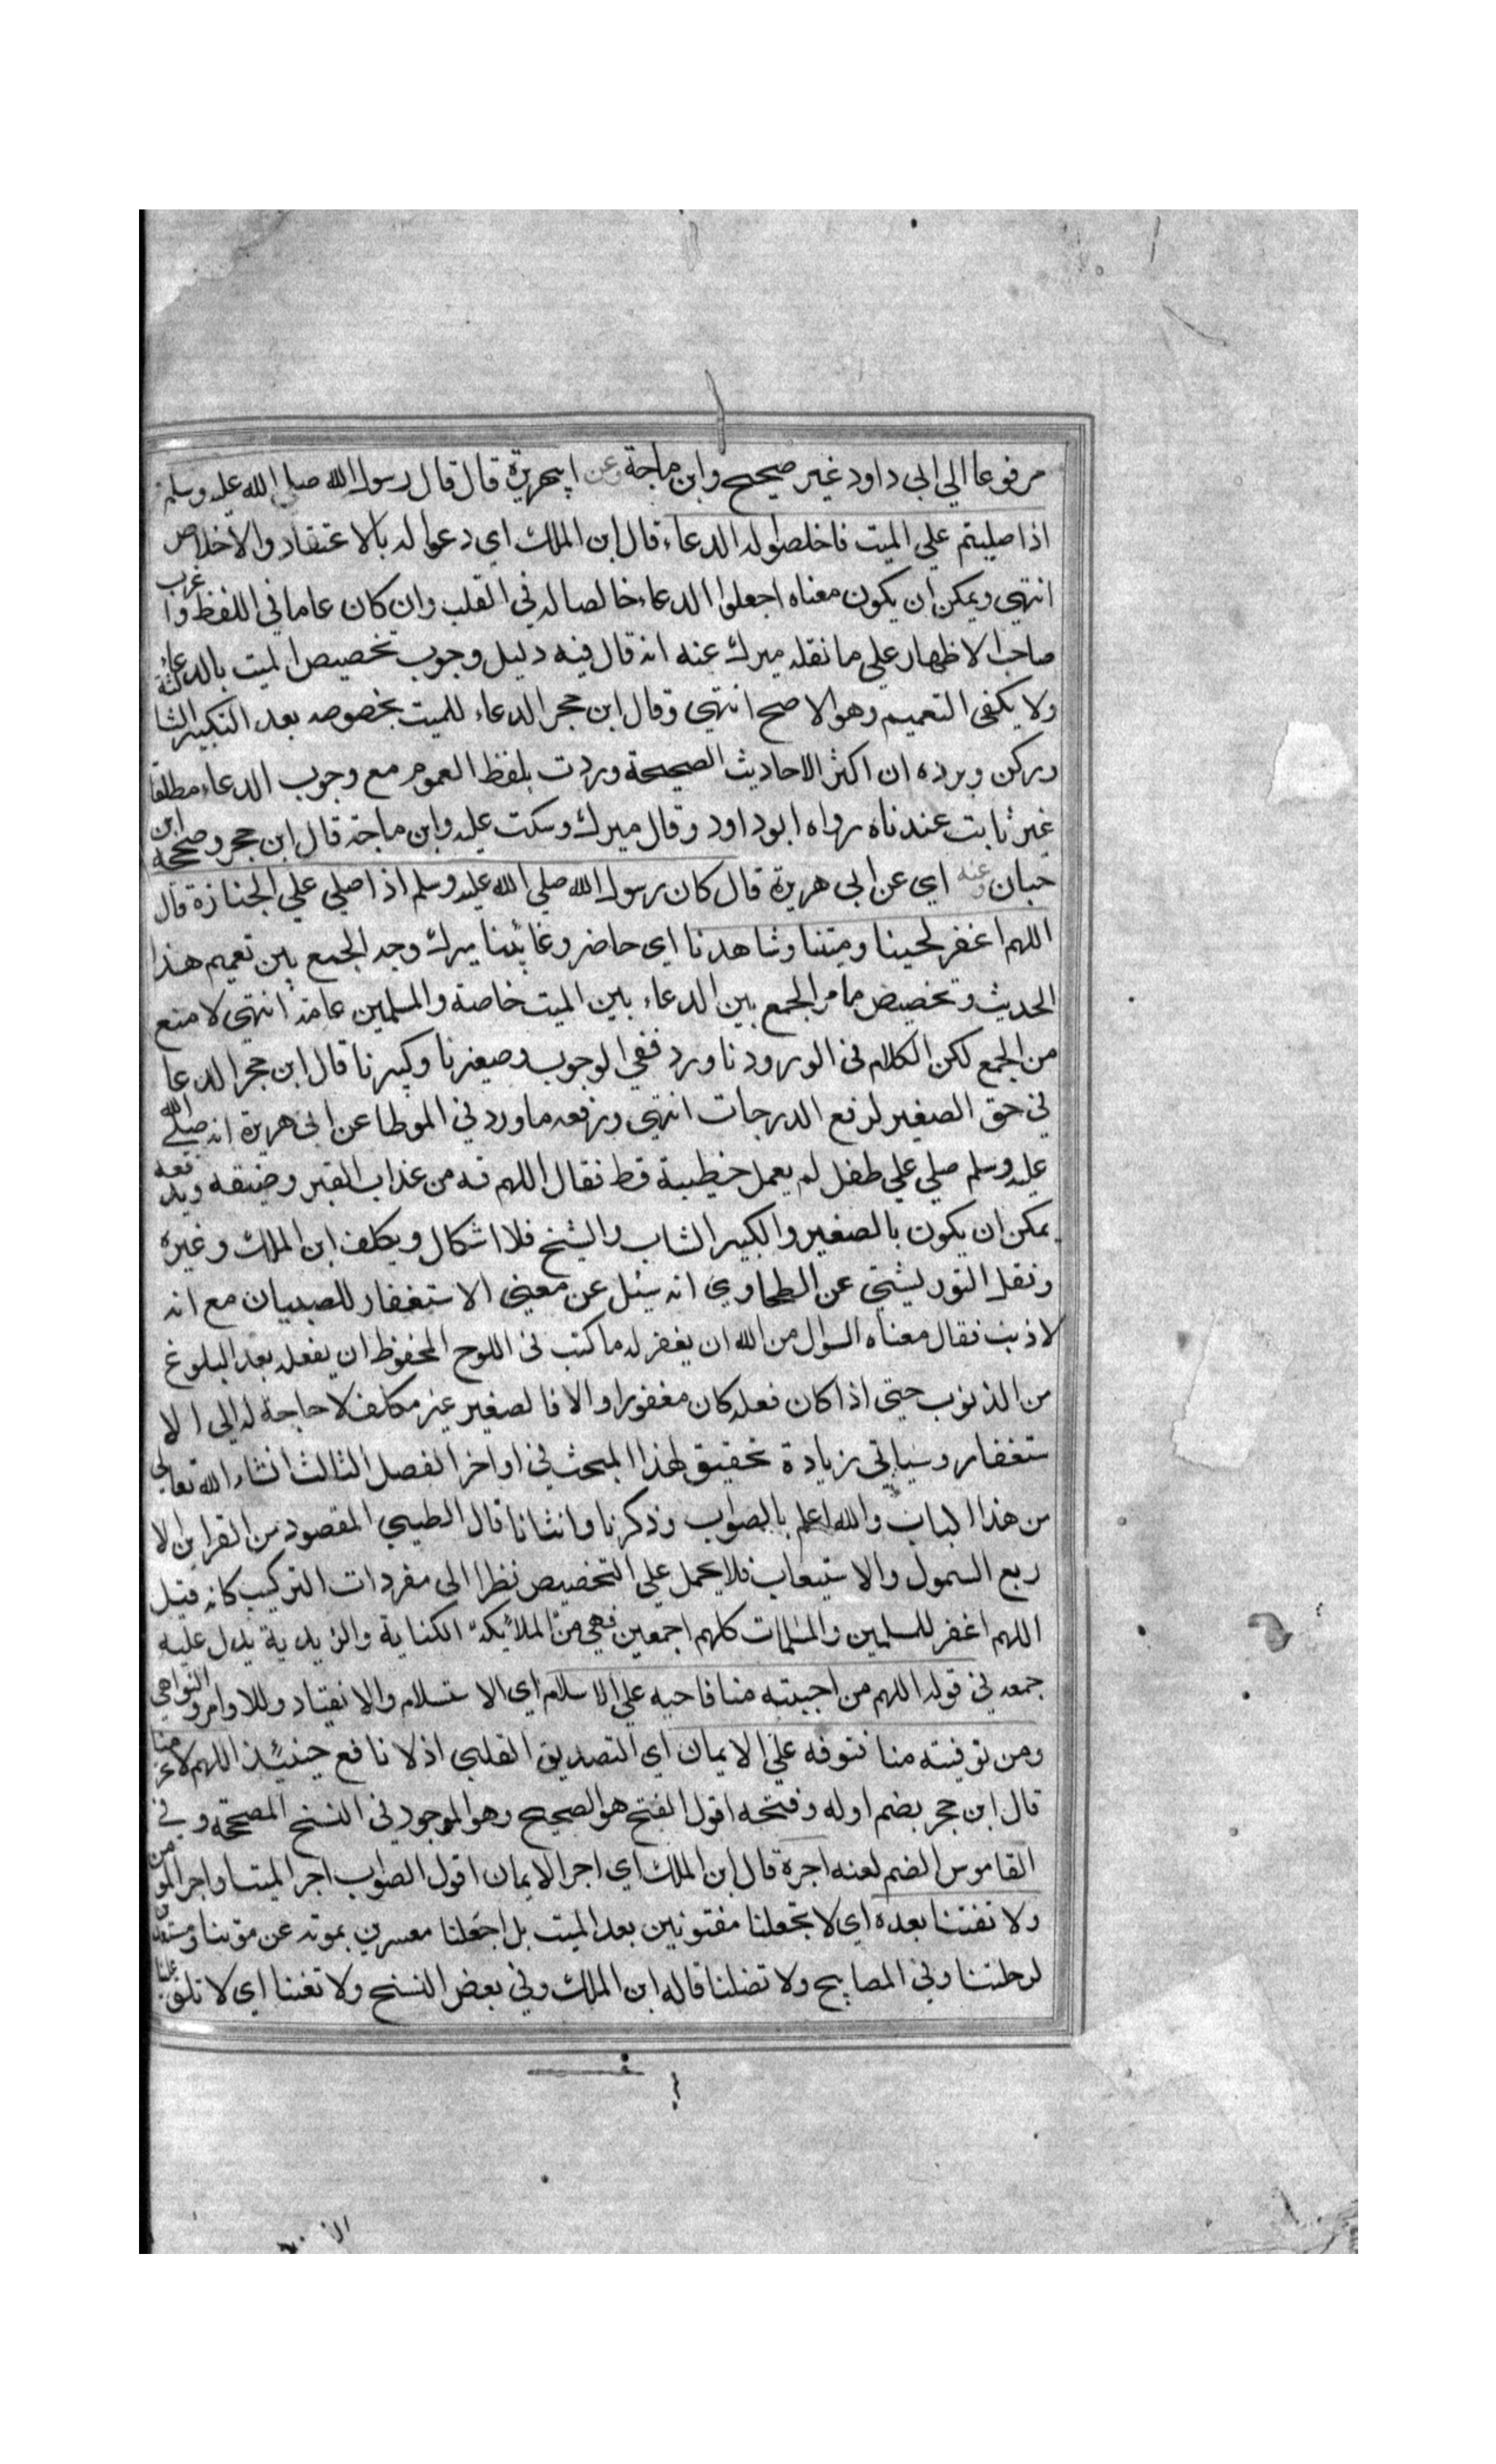 مرفوعا الي ابي داود غير صحيح وابن ماجة وعن ابيهريرة قال قال رسول الله صلي الله عليه وسلم
اذا صليتم علي الميت فاخلصوا له الدعاء قال ابن الملك اي دعوا له بالاعتقاد والاخلاص
انتهي ويمكن ان يكون معناه اجعلوا الدعاء خالصا له في القلب وان كان عاما في اللفظ واغرب
صاحب الاظهار علي ما نقله ميرك عنه انه قال فيه دليل وجوب تخصيص الميت بالدعاء
ولا يكفي التعميم وهو الاصح انتهي وقال ابن حجر الدعاء للميت بخصوصه بعد التكبير الثالثة
وركن ويرده ان اكثر الاحاديث الصحيحة وردت بلفظ العموم مع وجوب الدعاء مطلقا
غير ثابت عندناه رواه ابو داود وقال ميرك وسكت عليه وابن ماجة قال ابن حجر وصححه ابن
حبان وعنه اي عن ابي هريرة قال كان رسول الله صلي الله عليه وسلم اذا صلي علي الجنازة قال
اللهم اغفر لحينا وميتنا وشاهدنا اي حاضر وغائبنا ميرك وجه الجمع بين تعميم هذا
الحديث وتخصيص ما مر الجمع بين الدعاء بين الميت خاصة والمسلمين عامة انتهي لا منع
من الجمع لكن الكلام في الورود ناورد ففي الوجوب وصغيرنا وكبيرنا قال ابن حجر الدعا
في حق الصغير لرفع الدرجات انتهي ونرفعه ما ورد في الموطا عن ابي هريرة انه صلي الله
عليه وسلم صلي علي طفل لم يعمل خطيئة قط فقال اللهم قه من عذاب القبر وضيقه ويدفعه
يمكن ان يكون بالصغير والكبير الشاب والشيخ فلا اشكال ويكلف ابن الملك وغيره
ونقل التوربشتي عن الطحاوي انه سئل عن معني الاستغفار للصبيان مع انه
لا ذنب فقال معناه السوال من الله ان يغفر له ما كتب في اللوح المحفوظ ان يفعله بعد البلوغ
من الذنوب حتي اذا كان فعله كان مغفورا والا فالصغير غير مكلف لا حاجة له الي الا
ستغفار وسياتي زيادة تحقيق لهذا المبحث في اواخر الفصل الثالث انشاء الله تعالي
من هذا الباب والله اعلم بالصواب وذكرنا وانثانا قال الطيبي المقصود من القراين الا
ربع السمول والاستيعاب فلا يحمل علي التخصيص نظرا الى مفردات التركيب كانه قيل
اللهم اغفر للمسلمين والمسلمات كلهم اجمعين فهي من الملائكة الكناية والزيدية يدل عليه
جمعه في قوله اللهم من احييته منا فاحيه علي الاسلام اي الاستسلام والانقياد وللاوامر والنواهي
ومن توفيته منا فتوفه علي الايمان اي التصديق القلبي اذ لا نافع حينئذ اللهم لا تحرمنا
قال ابن حجر بضم اوله وفتحه اقول الفتح هو الصحيح وهو الموجود في النسخ المصححة وفي
القاموس الضم لعنه اجرة قال ابن الملك اي اجر الايمان اقول الصواب اجر الميت او اجر المومن
ولا تفتنا بعده اي لا تجعلنا مفتونين بعد الميت بل اجعلنا معسرين بموته عن موتينا ومستعدين
لرحلتنا وفي المصابيح ولا تضلنا قاله ابن الملك وفي بعض النسخ ولا تفتنا اي لا تلق علينا